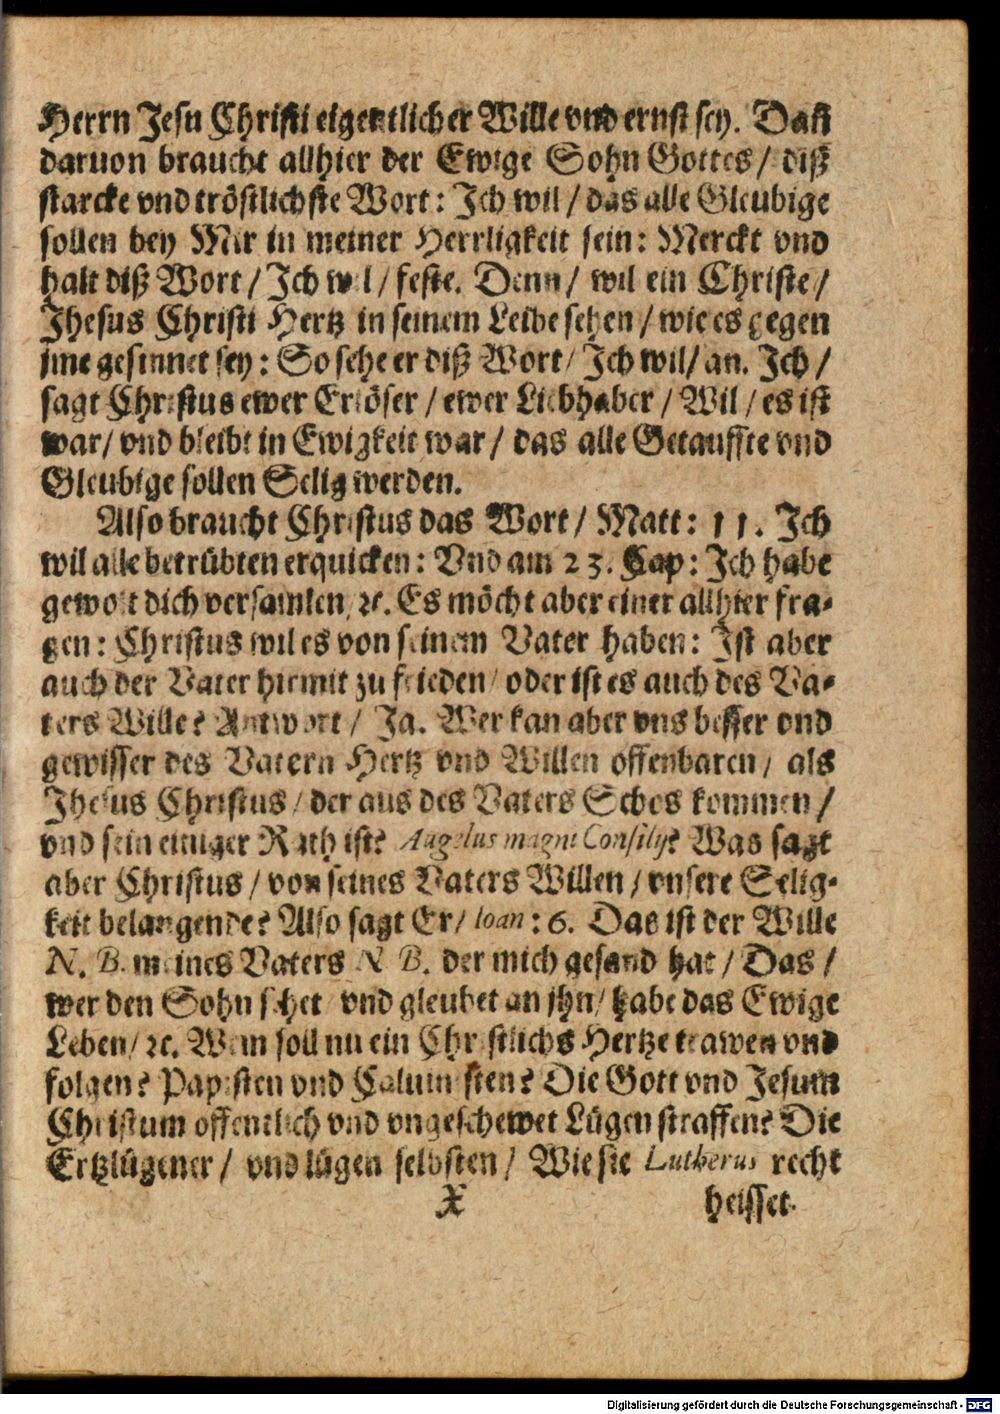 Herrn Jesu Christi eigentlicher Wille vnd ernst sey. Dañ
daruon braucht allhier der Ewige Sohn Gottes / diß
starcke vnd tröstlichste Wort: Ich wil / das alle Gleubige
sollen bey Mir in meiner Herrligkeit sein: Merckt vnd
halt diß Wort / Ich wil / feste. Denn / wil ein Christe /
Jhesus Christi Hertz in seinem Leibe sehen / wie es gegen
jme gesinnet sey: So sehe er diß Wort / Ich wil / an. Ich /
sagt Christus ewer Erlöser / ewer Liebhaber / Wil / es ist
war / vnd bleibt in Ewigkeit war / das alle Getauffte vnd
Gleubige sollen Selig werden.
Also braucht Christus das Wort / Matt: 11. Ich
wil alle betrübten erquicken: Vnd am 23. Cap: Ich habe
gewolt dich versamlen, ꝛc. Es möcht aber einer allhier fra-
gen: Christus wil es von seinem Vater haben: Ist aber
auch der Vater hiemit zu frieden / oder ist es auch des Va-
ters Wille? Antwort / Ja. Wer kan aber vns besser vnd
gewisser des Vatern Hertz vnd Willen offenbaren / als
Jhesus Christus / der aus des Vaters Schos kommen /
vnd sein einiger Rath ist? Angelus magni Consilij? Was sagt
aber Christus / von seines Vaters Willen / vnsere Selig-
keit belangende? Also sagt Er / Ioan: 6. Das ist der Wille
N. B. meines Vaters N B. der mich gesand hat / Das /
wer den Sohn sihet vnd gleubet an jhn / habe das Ewige
Leben / ꝛc. Wem soll nu ein Christlichs Hertze trawen vnd
folgen? Papisten vnd Caluinisten? Die Gott vnd Jesum
Christum offentlich vnd vngeschewet Lügen straffen? Die
Ertzlügener / vnd lügen selbsten / Wie sie Lutherus recht
X heisset.
Digitalisierung gefördert durch die Deutsche Forschungsgemeinschaft - DFG